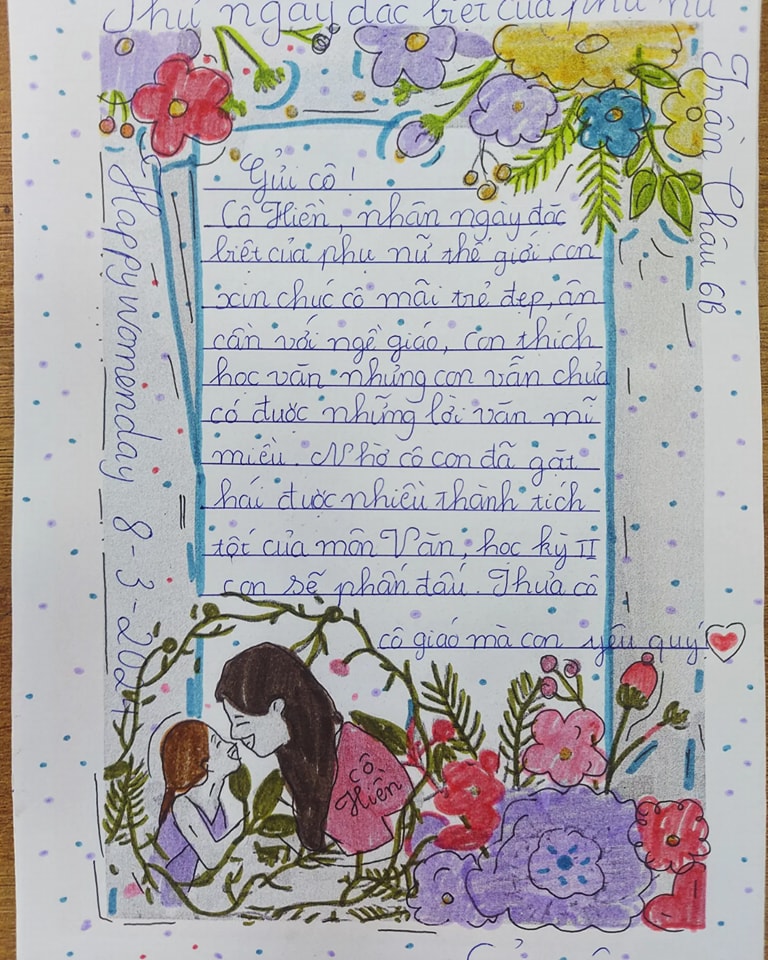 Thư ngày đặc biệt của phụ nữ
Trân Châu 6B
Happy womenday 8-3-2024
Gửi cô!
Cô Hiền, nhân ngày đăc
biêt của phu nữ thế giới, con
xin chúc cô mãi trẻ đep, ân
cần với ngề giáo, con thích
hoc văn nhưng con vẫn chưa
có đươc những lời văn mĩ
miều. Nhờ cô con đã gặt
hái đươc nhiều thành tích
tốt của môn Văn, hoc kỳ II
con sẽ phấn đấu. Thưa cô
cô giáo mà con yêu quý!
cô
Hiền